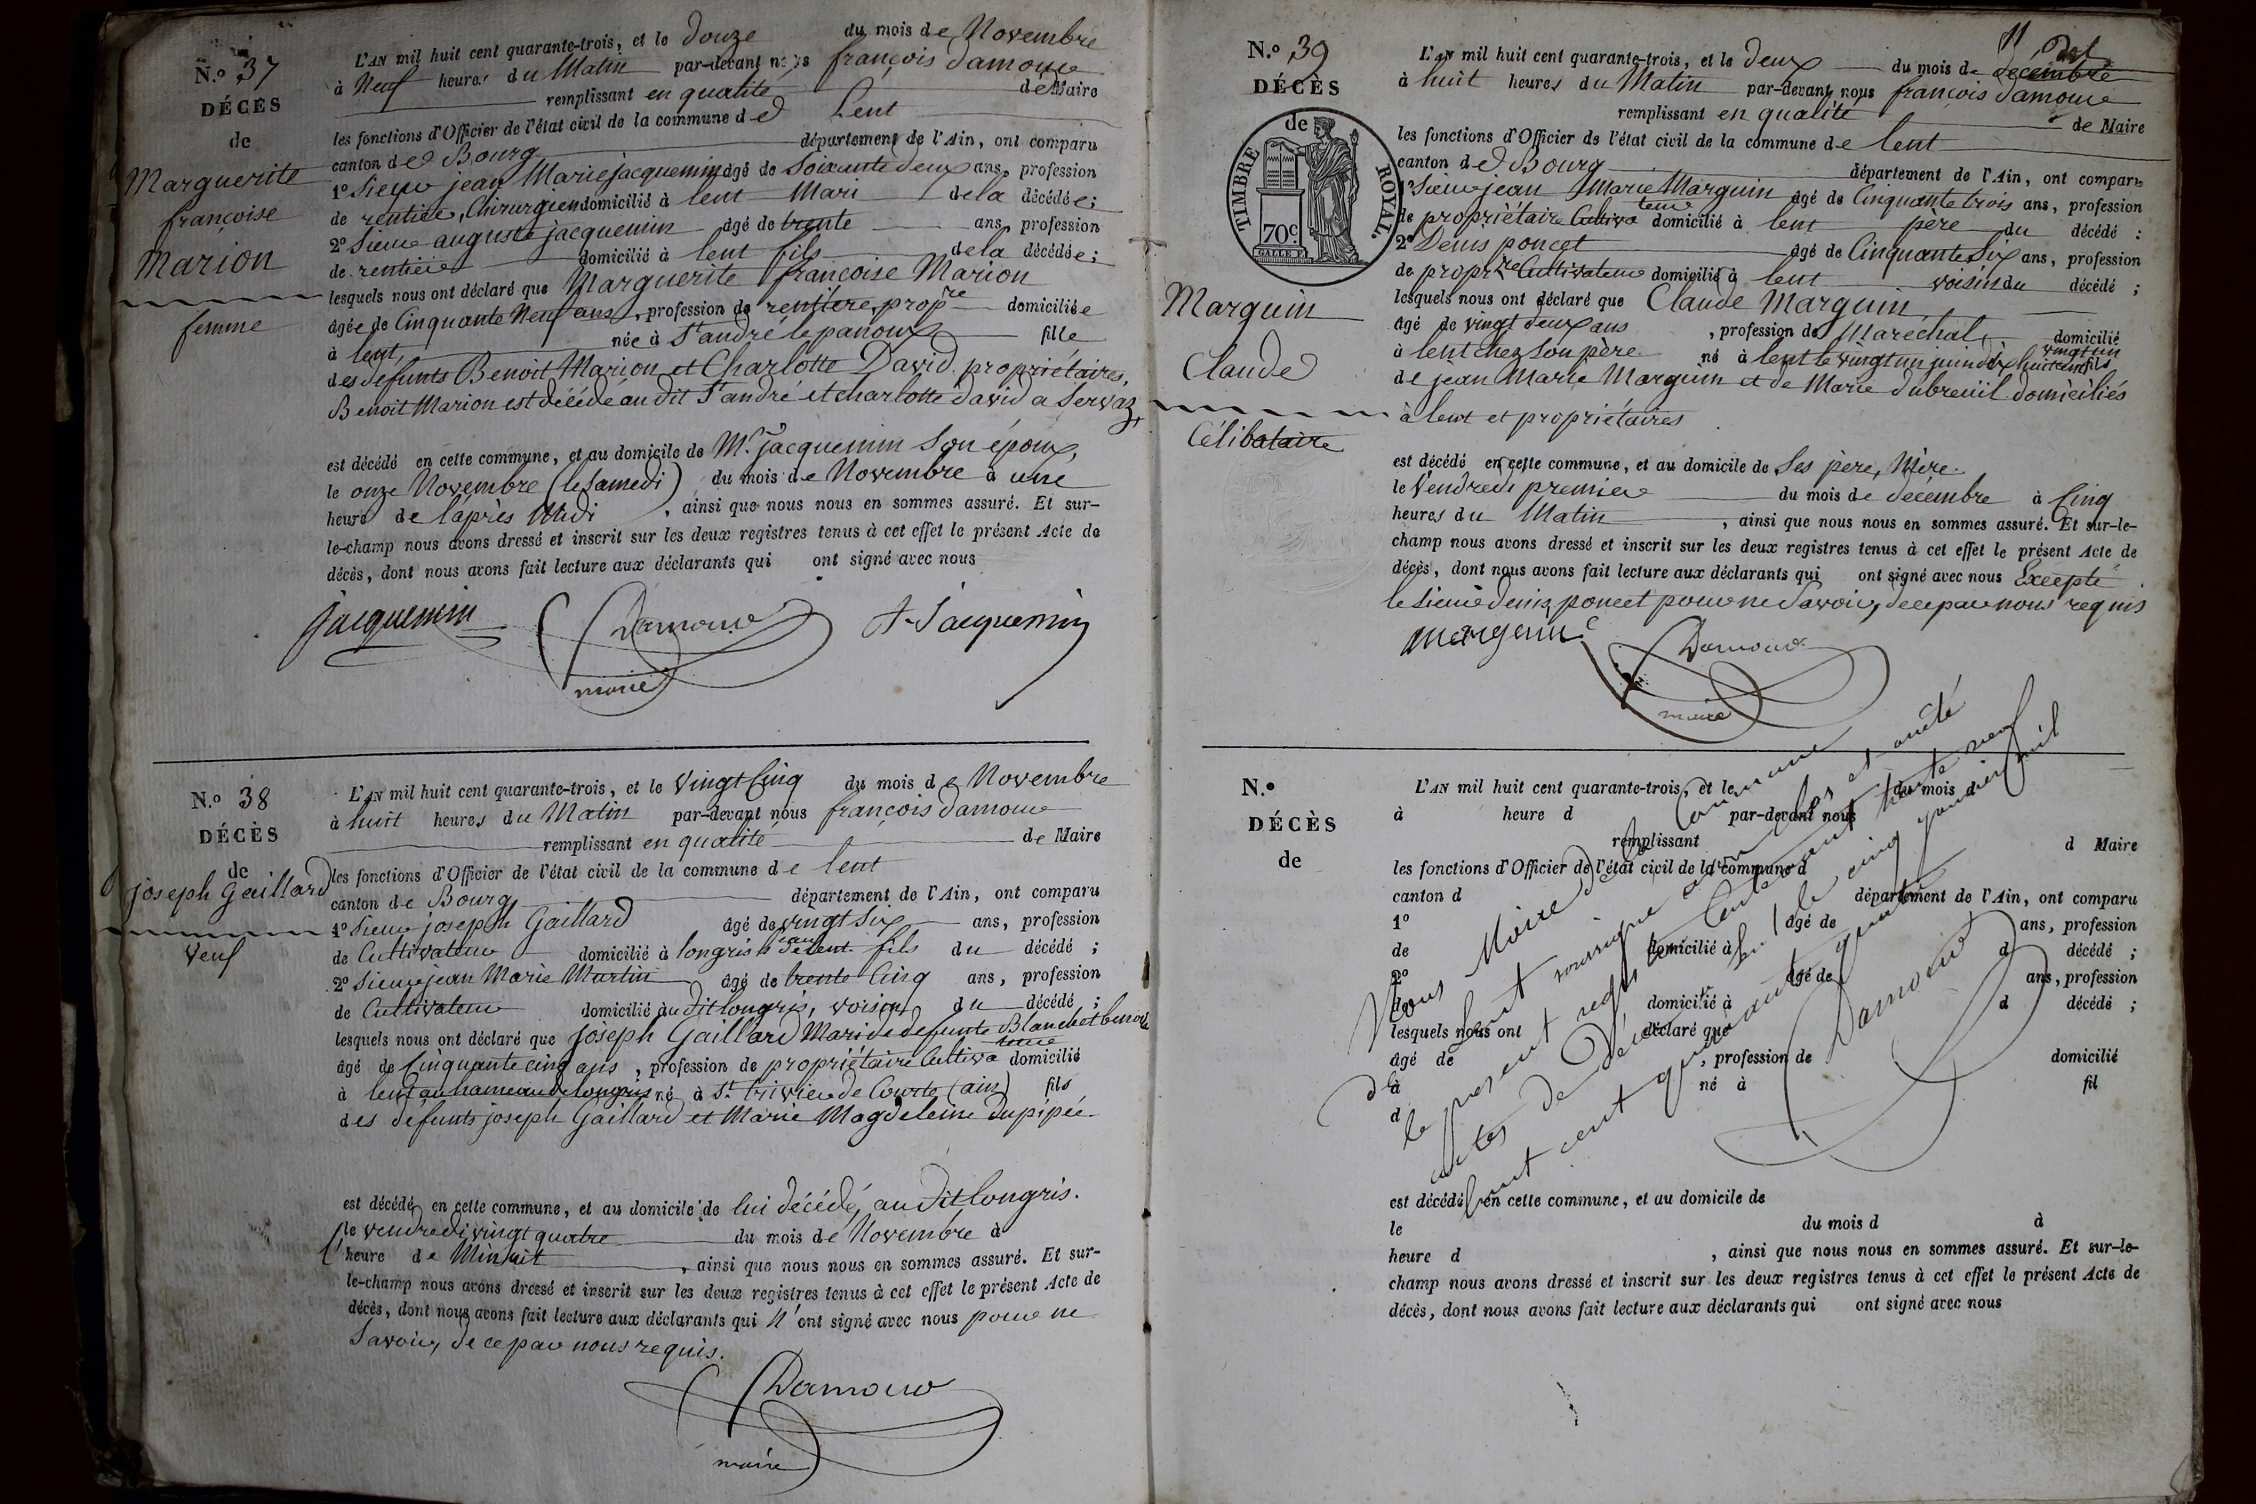 N.º 37
DÉCÈS
de
Marguerite
françoise
Marion
femme
L'AN mil huit cent quarante-trois, et le douze du mois de Novembre
à Neuf heures du Matin par-devant nous françois damour
remplissant en qualité de Maire
les fonctions d'Officier de l'état civil de la commune de Lent
canton de Bourg département de l'Ain, ont comparu
1º Sieur jean Marie jacquemin âgé de Soixante deux ans, profession
de rentier, Chirurgien domicilié à lent Mari de la décédée;
2º Sieur auguste jacquemin âgé de trente ans, profession
de rentier domicilié à lent fils de la décédée;
lesquels nous ont déclaré que Marguerite françoise Marion
âgée de Cinquante Neuf ans, profession de rentiere, propre domiciliée
à lent née à St andré le panoux fille
des défunts Benoit Marion et Charlotte David propriétaires,
Benoit Marion est décédé au dit St andré et charlotte david a Servaz
est décédé en cette commune, et au domicile de Mr jacquemin Son époux,
le onze Novembre (le Samedi) du mois de Novembre à une
heure de l'après Midi, ainsi que nous nous en sommes assuré. Et sur-
le-champ nous avons dressé et inscrit sur les deux registres tenus à cet effet le présent Acte de
décès, dont nous avons fait lecture aux déclarants qui ont signé avec nous
jacquemin Damour A. Jacquemin
maire
N.º 38
DÉCÈS
de
joseph Gaillard
veuf
L'AN mil huit cent quarante-trois, et le vingt Cinq du mois de Novembre
à huit heures du Matin par-devant nous françois damour
remplissant en qualité de Maire
les fonctions d'Officier de l'état civil de la commune de lent
canton de Bourg département de l'Ain, ont comparu
1º Sieur joseph Gaillard âgé de vingt Six ans, profession
de Cultivateur domicilié à longris hau de lent fils du décédé;
2º Sieur jean Marie Martin âgé de trente Cinq ans, profession
de Cultivateur domicilié au dit longris, voisin du décédé;
lesquels nous ont déclaré que joseph Gaillard Mari de defunte Blanchet benoite
âgé de Cinquante cinq ans, profession de propriétaire Cultivateur domicilié
à lent au hameau de longris né à St trivier de Courte (ain) fils
des défunts joseph Gaillard et Marie Magdeleine dupipée
est décédé en cette commune, et au domicile de lui décédé, au dit longris.
le vendredi vingt quatre du mois de Novembre à
l'heure de Minuit, ainsi que nous nous en sommes assuré. Et sur-
le-champ nous avons dressé et inscrit sur les deux registres tenus à cet effet le présent Acte de
décès, dont nous avons fait lecture aux déclarants qui n'ont signé avec nous pour ne
Savoir, de ce par nous requis.
Damour
maire
11
N.º 39
DÉCÈS
de
TIMBRE ROYAL
70c.
Marguin
Claude
Célibataire
L'AN mil huit cent quarante-trois, et le deux du mois de décembre
à huit heures du Matin par-devant nous françois damour
remplissant en qualité de Maire
les fonctions d'Officier de l'état civil de la commune de lent
canton de Bourg département de l'Ain, ont comparu
1º Sieur jean Marie Marguin âgé de Cinquante trois ans, profession
de propriétaire Cultivateur domicilié à lent père du décédé :
2º Denis poncet âgé de Cinquante Six ans, profession
de propre Cultivateur domicilié à lent voisin du décédé ;
lesquels nous ont déclaré que Claude Marguin
âgé de vingt deux ans, profession de Maréchal, domicilié
à lent chez Son père né à lent le vingt un juin dix huit cent vingt un fils
de jean Marie Marguin et de Marie dubreüil domiciliés
à lent et propriétaires
est décédé en cette commune, et au domicile de Ses père, Mère
le Vendredi premier du mois de décembre à Cinq
heures du Matin, ainsi que nous nous en sommes assuré. Et sur-le-
champ nous avons dressé et inscrit sur les deux registres tenus à cet effet le présent Acte de
décès, dont nous avons fait lecture aux déclarants qui ont signé avec nous Excepté
le Sieur denis poncet pour ne Savoir, de ce par nous requis
marguin Damour
maire
N.º
DÉCÈS
de
L'AN mil huit cent quarante-trois, et le du mois d
à heure d par-devant nous
remplissant d Maire
les fonctions d'Officier de l'état civil de la commune d
canton d département de l'Ain, ont comparu
1º âgé de ans, profession
de domicilié à d décédé ;
2º âgé de ans, profession
de domicilié à d décédé ;
lesquels nous ont déclaré que
âgé de , profession de domicilié
à né à fil
d
est décédé en cette commune, et au domicile de
le du mois d à
heure d , ainsi que nous nous en sommes assuré. Et sur-le-
champ nous avons dressé et inscrit sur les deux registres tenus à cet effet le présent Acte de
décès, dont nous avons fait lecture aux déclarants qui ont signé avec nous
Nous Maire de la Commune
de Lent soussigné avons clos et arrêté
le présent registre Contenant trente neuf
actes de Décès le cinq janvier mil
huit cent quarante quatre
Damour